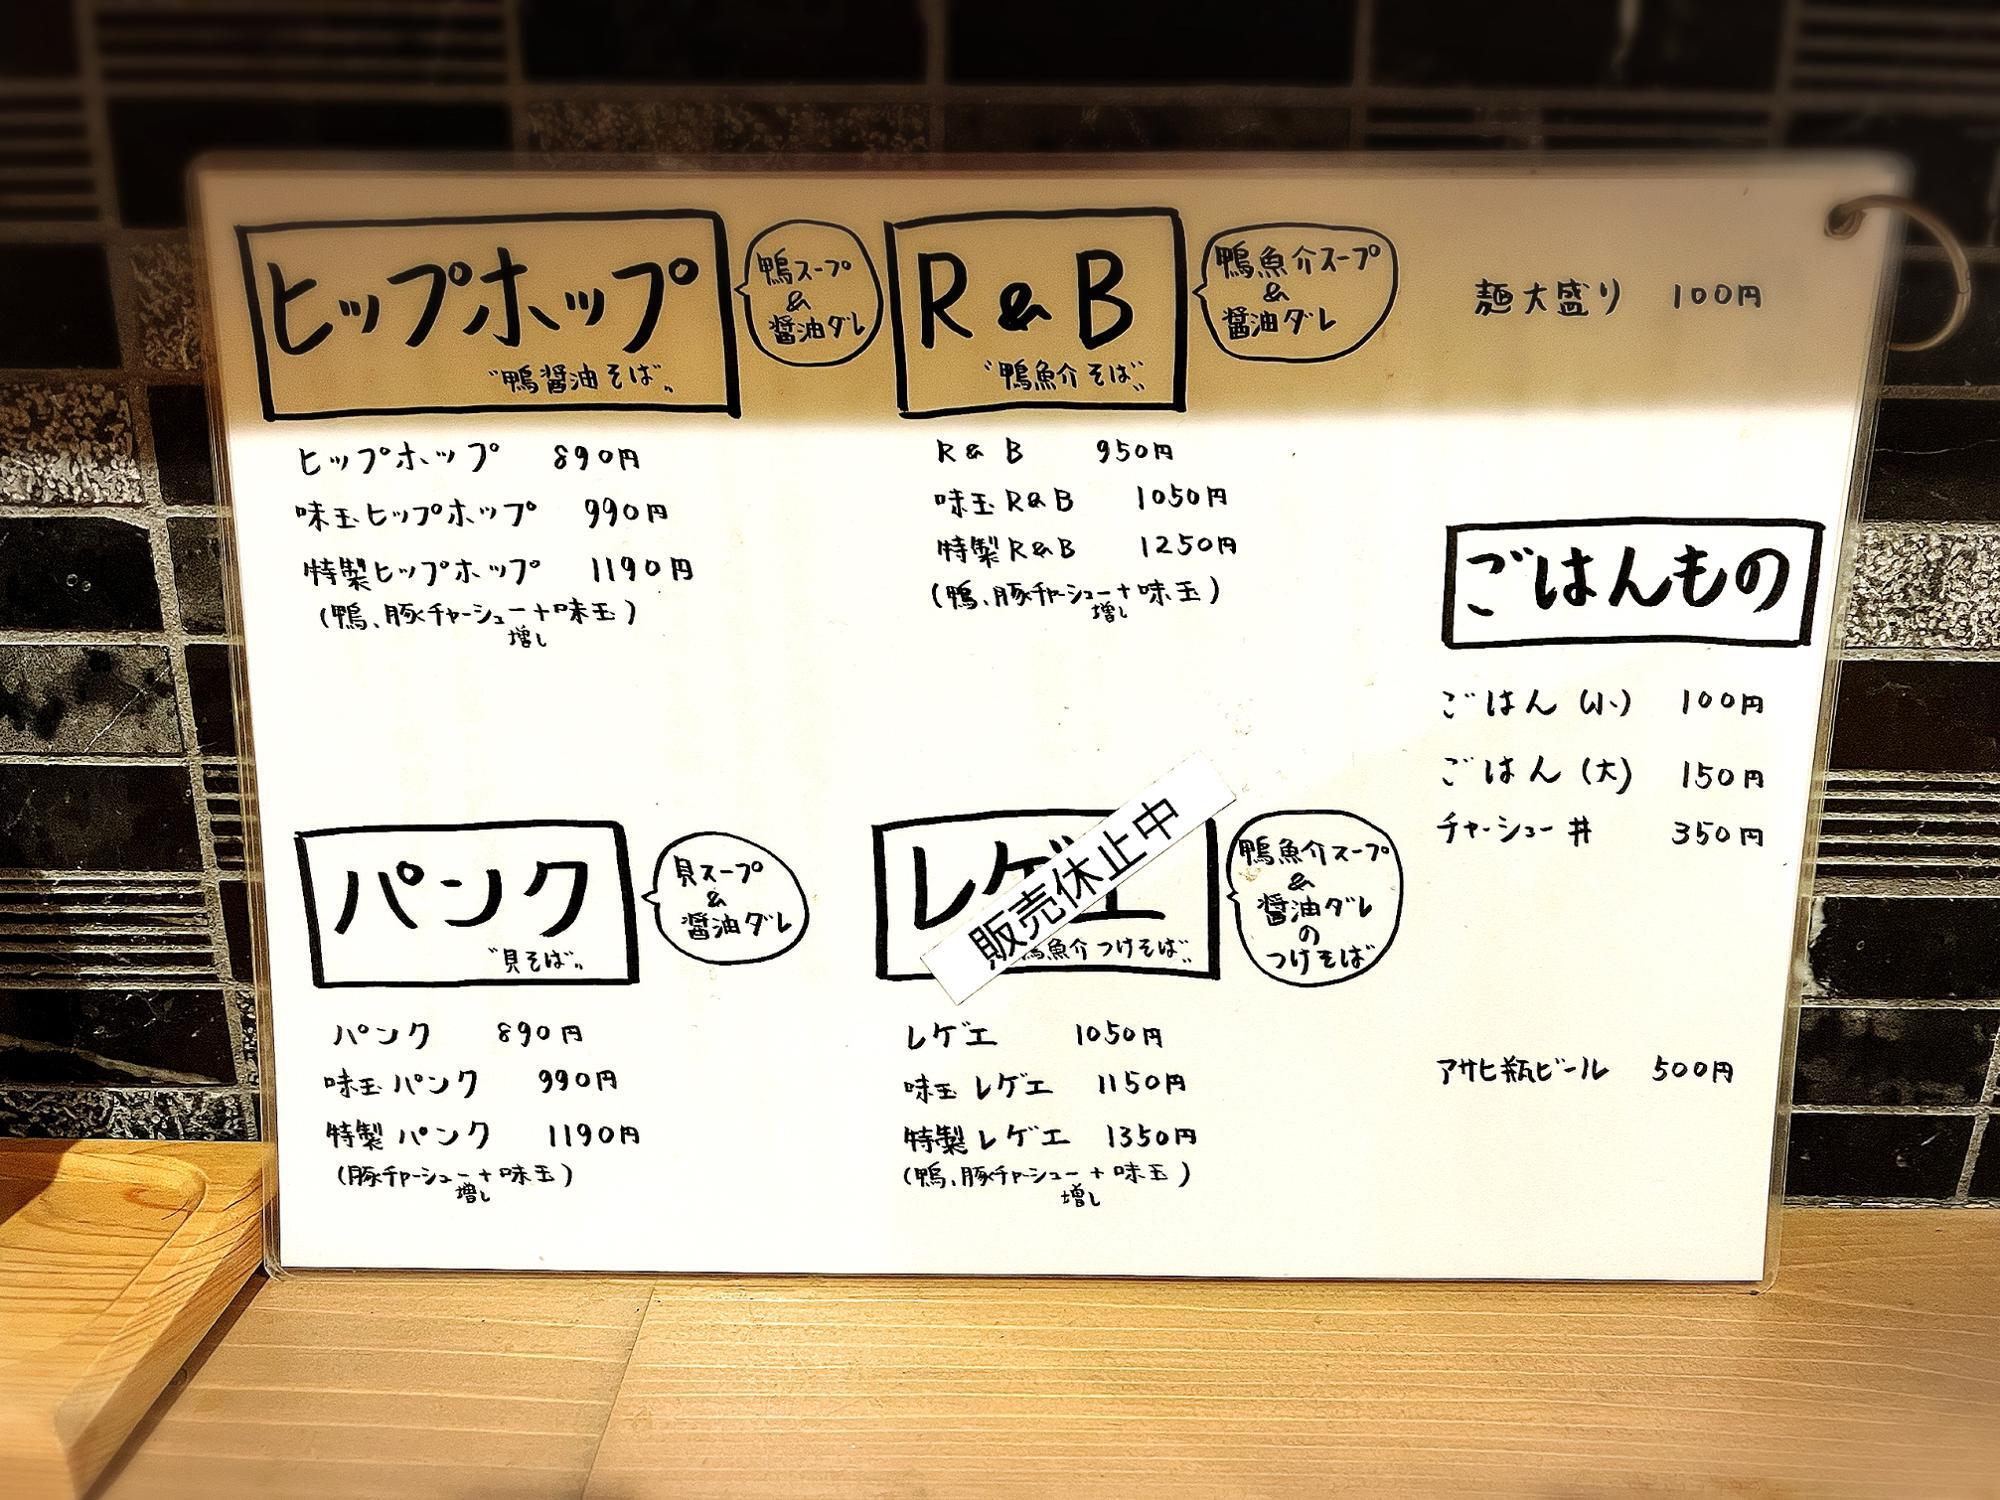 ヒップホップ
"鴨醤油そば"
鴨スープ
&
醤油ダレ
ヒップホップ 890円
味玉ヒップホップ 990円
特製ヒップホップ 1190円
(鴨、豚チャーシュー+味玉)
増し
R&B
"鴨魚介そば"
鴨魚介スープ
&
醤油ダレ
R&B 950円
味玉R&B 1050円
特製R&B 1250円
(鴨、豚チャーシュー+味玉)
増し
麺大盛り 100円
ごはんもの
ごはん(小) 100円
ごはん(大) 150円
チャーシュー丼 350円
アサヒ瓶ビール 500円
パンク
"貝そば"
貝スープ
&
醤油ダレ
パンク 890円
味玉パンク 990円
特製パンク 1190円
(豚チャーシュー+味玉)
増し
レゲエ
販売休止中
鴨魚介つけそば"
鴨魚介スープ
&
醤油ダレ
の
つけそば
レゲエ 1050円
味玉レゲエ 1150円
特製レゲエ 1350円
(鴨、豚チャーシュー+味玉)
増し